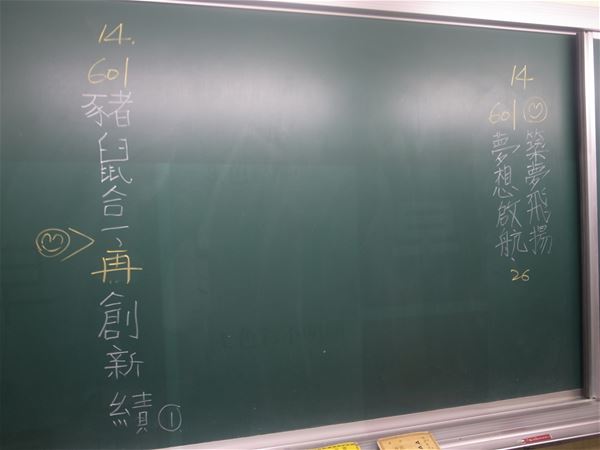 14.
601
豬鼠合一、再創新績 ①
14
601
築夢飛揚
夢想啟航、26